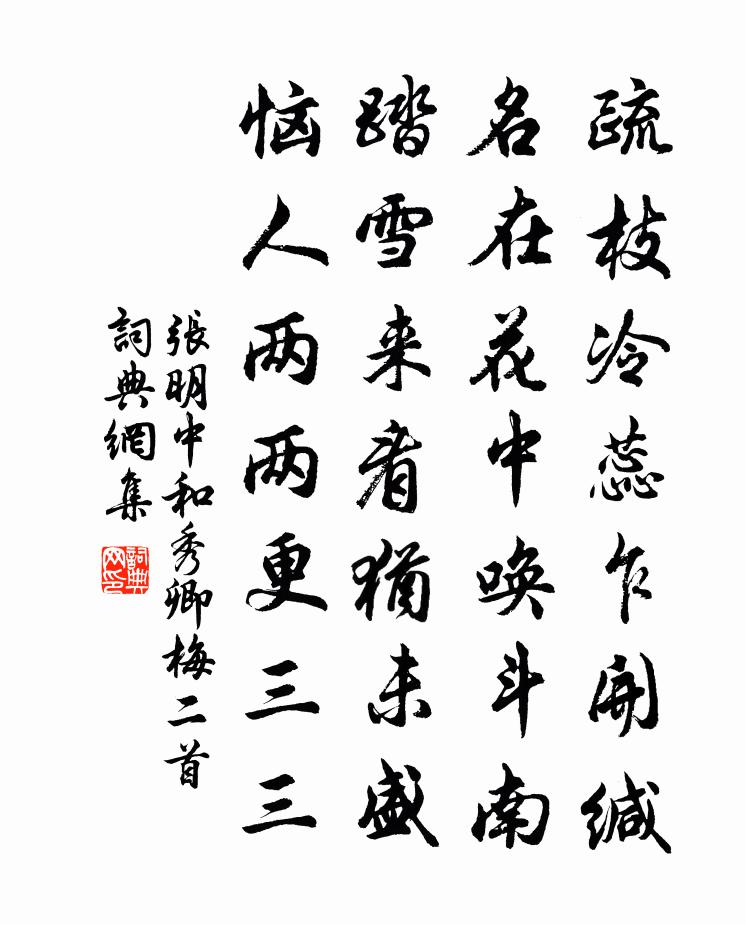 疏枝冷蕊乍開缄
名在花中唤斗南
踏雪来看猶未盛
恼人两两更三三
張明中和秀卿梅二首
詞典網集
詞典
网印